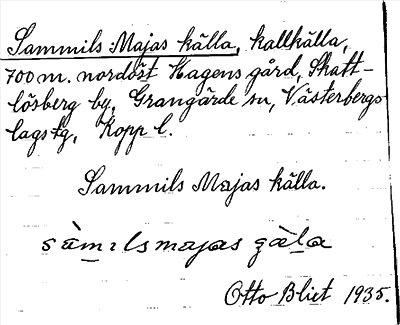 Sammils Majas källa, kallkälla,
700 m. nordöst Hagens gård, Skatt-
lösberg by, Grangärde sn, Västerbergs
lags tg, Kopp. l.
Sammils Majas källa.
Otto Blixt 1935.